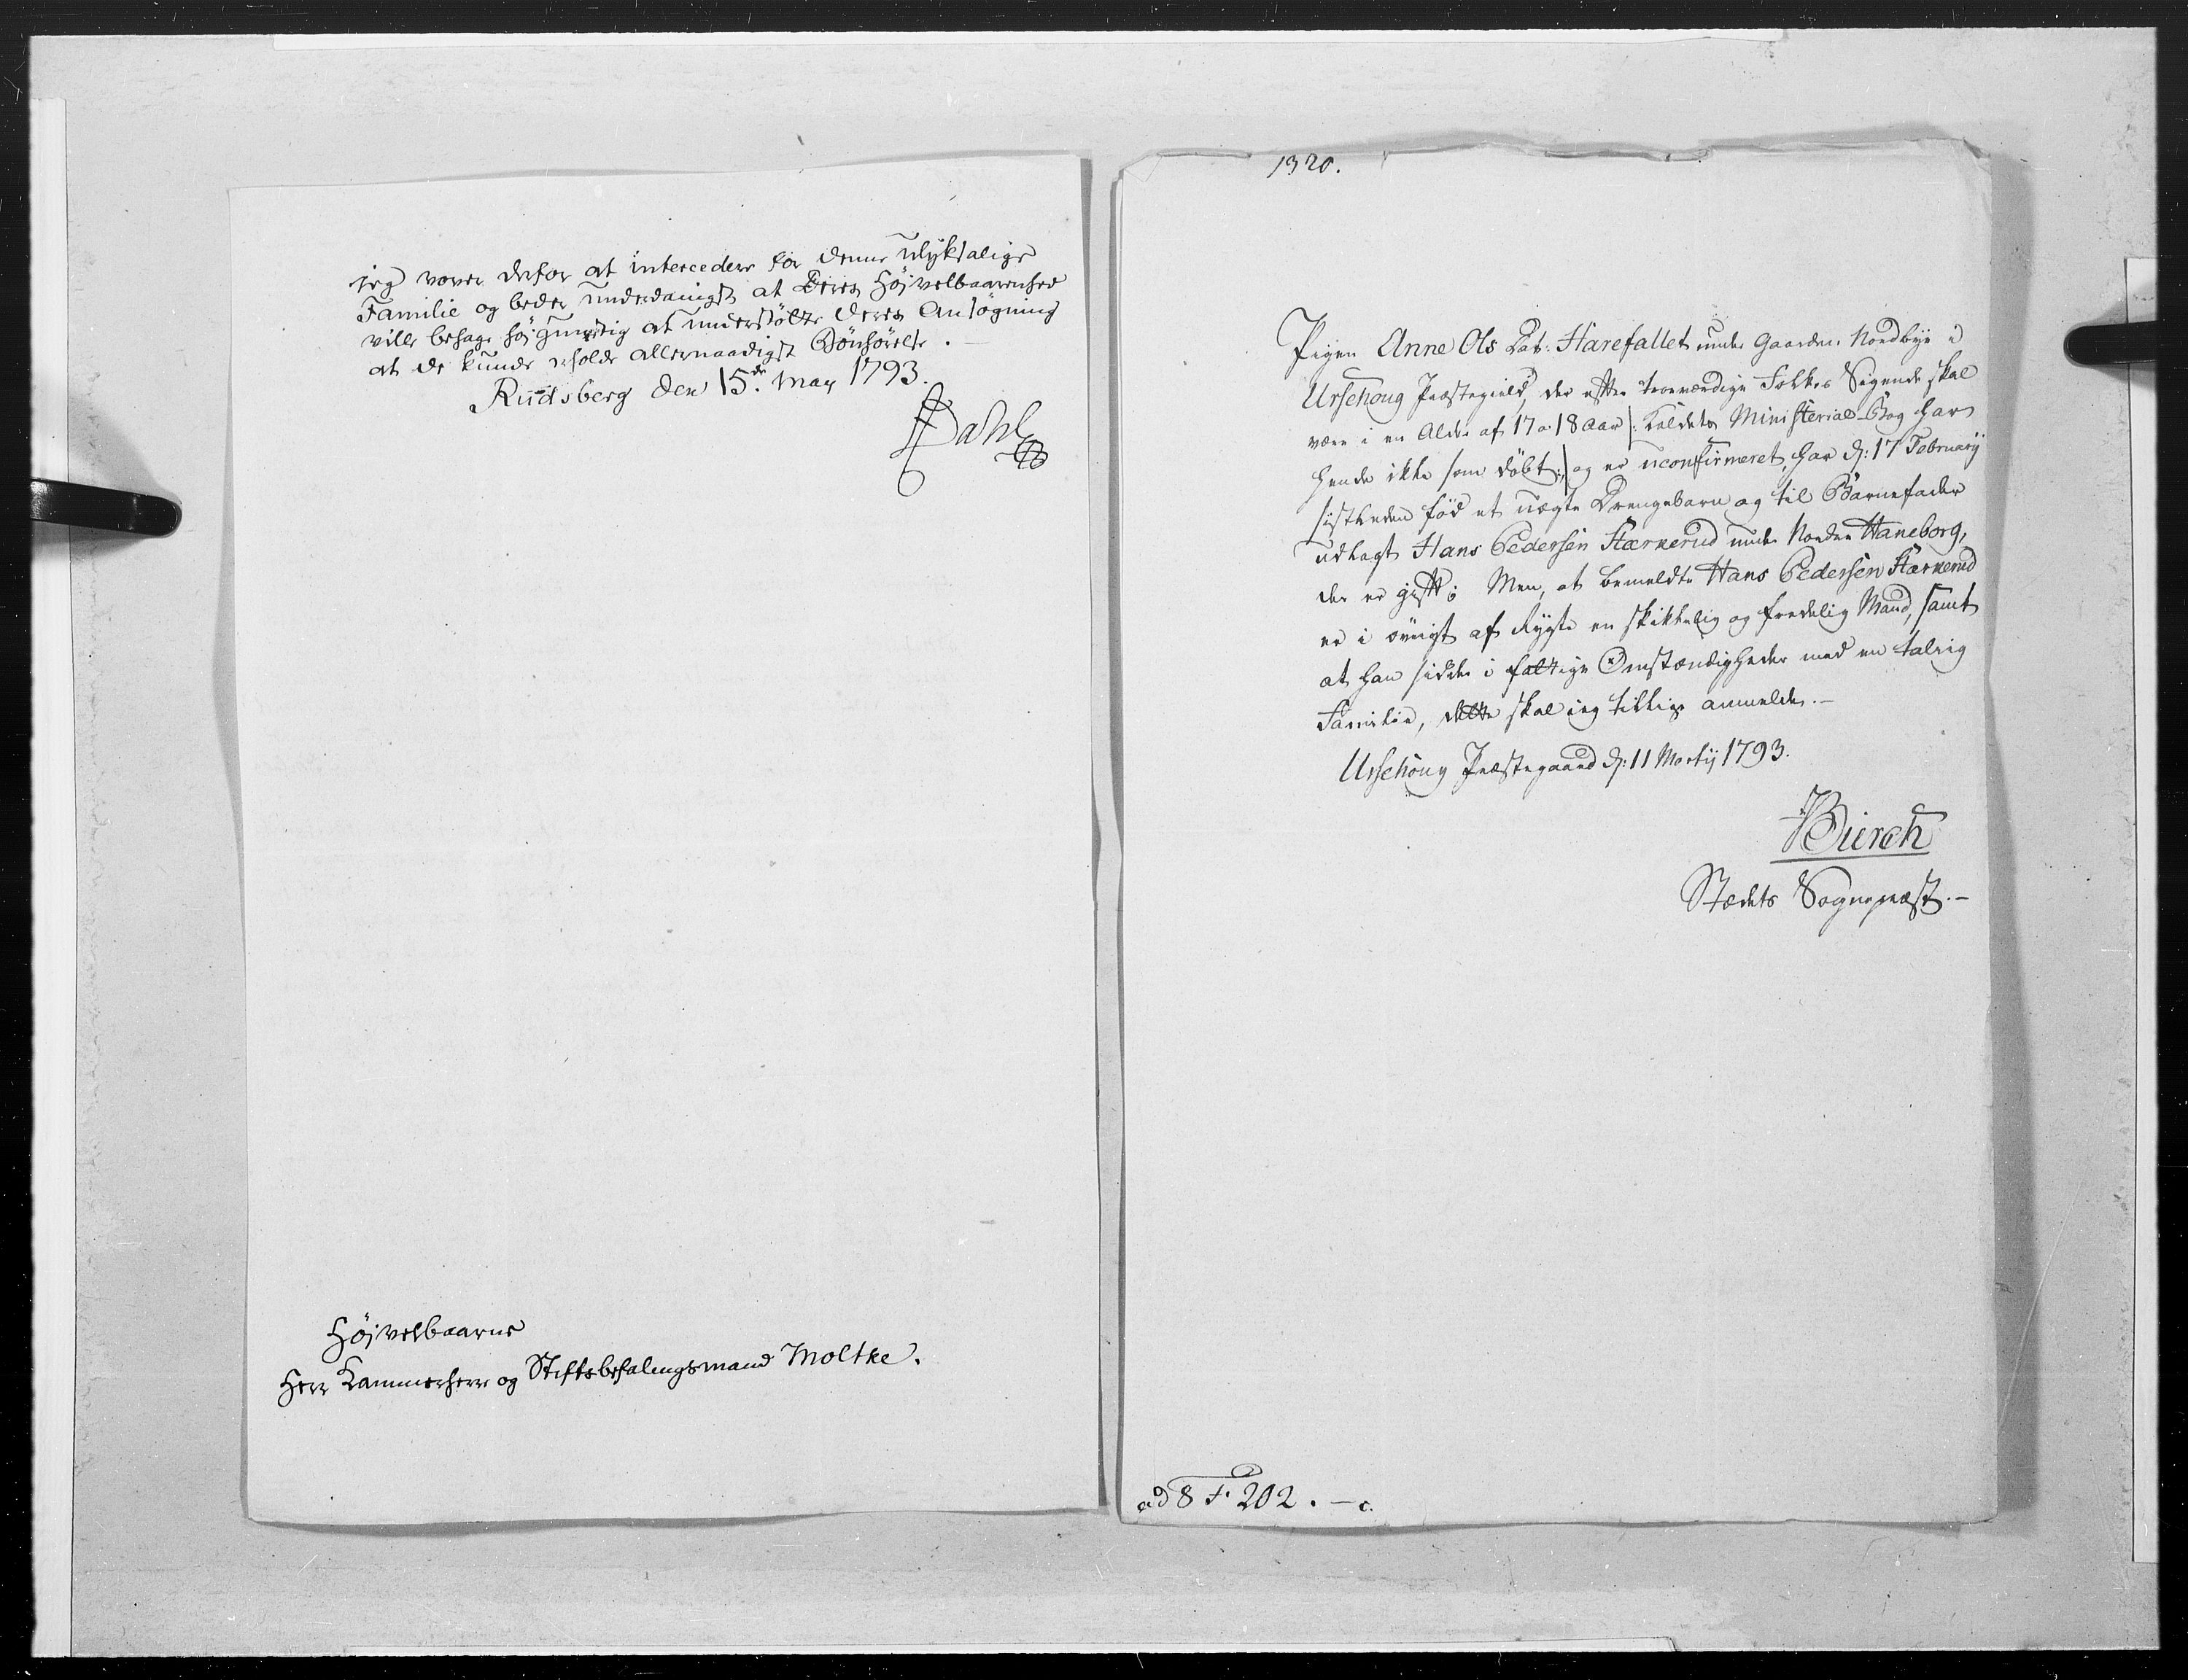 jeg vover derfor at intercedere for denne ulyksalige
Familie og beder underdanigst at Deres Højvelbaarenhed
ville behage højgunstig at understøtte deres Ansøgning
at de kunde erholde allernaadigst Bønhørelse. —
Rudsberg den 15de May 1793.
Dahl
Højvelbaarne
Herr Kammerherre og Stiftsbefalingsmand Moltke.
1320.
Pigen Anne Ols Dat: Harefallet under Gaarden Nordbye i
Urschoug Præstegield, der efter troeværdige Folkes Sigende skal
være i en Alder af 17 a 18 Aar |: Kaldets Ministerial-Bog har
hende ikke som døbt :| og er uconfirmeret, har d: 17 Februarij
sisthen fød et uægte Drengebarn og til Barnefader
udlagt Hans Pedersen Stærkerud under Nordre Haneborg,
der er gift; Men, at bemeldte Hans Pedersen Stærkerud
er i øvrigt af Rygte en skikkelig og fredelig Mand, samt
at han sidder i fattige Omstændigheder med en talrig
Familie, dette skal jeg tillige anmelde. —
Urschoug Præstegaard d: 11 Martij 1793.
Bierch
Stædets Sognepræst. —
ad 8 F 202. — c.